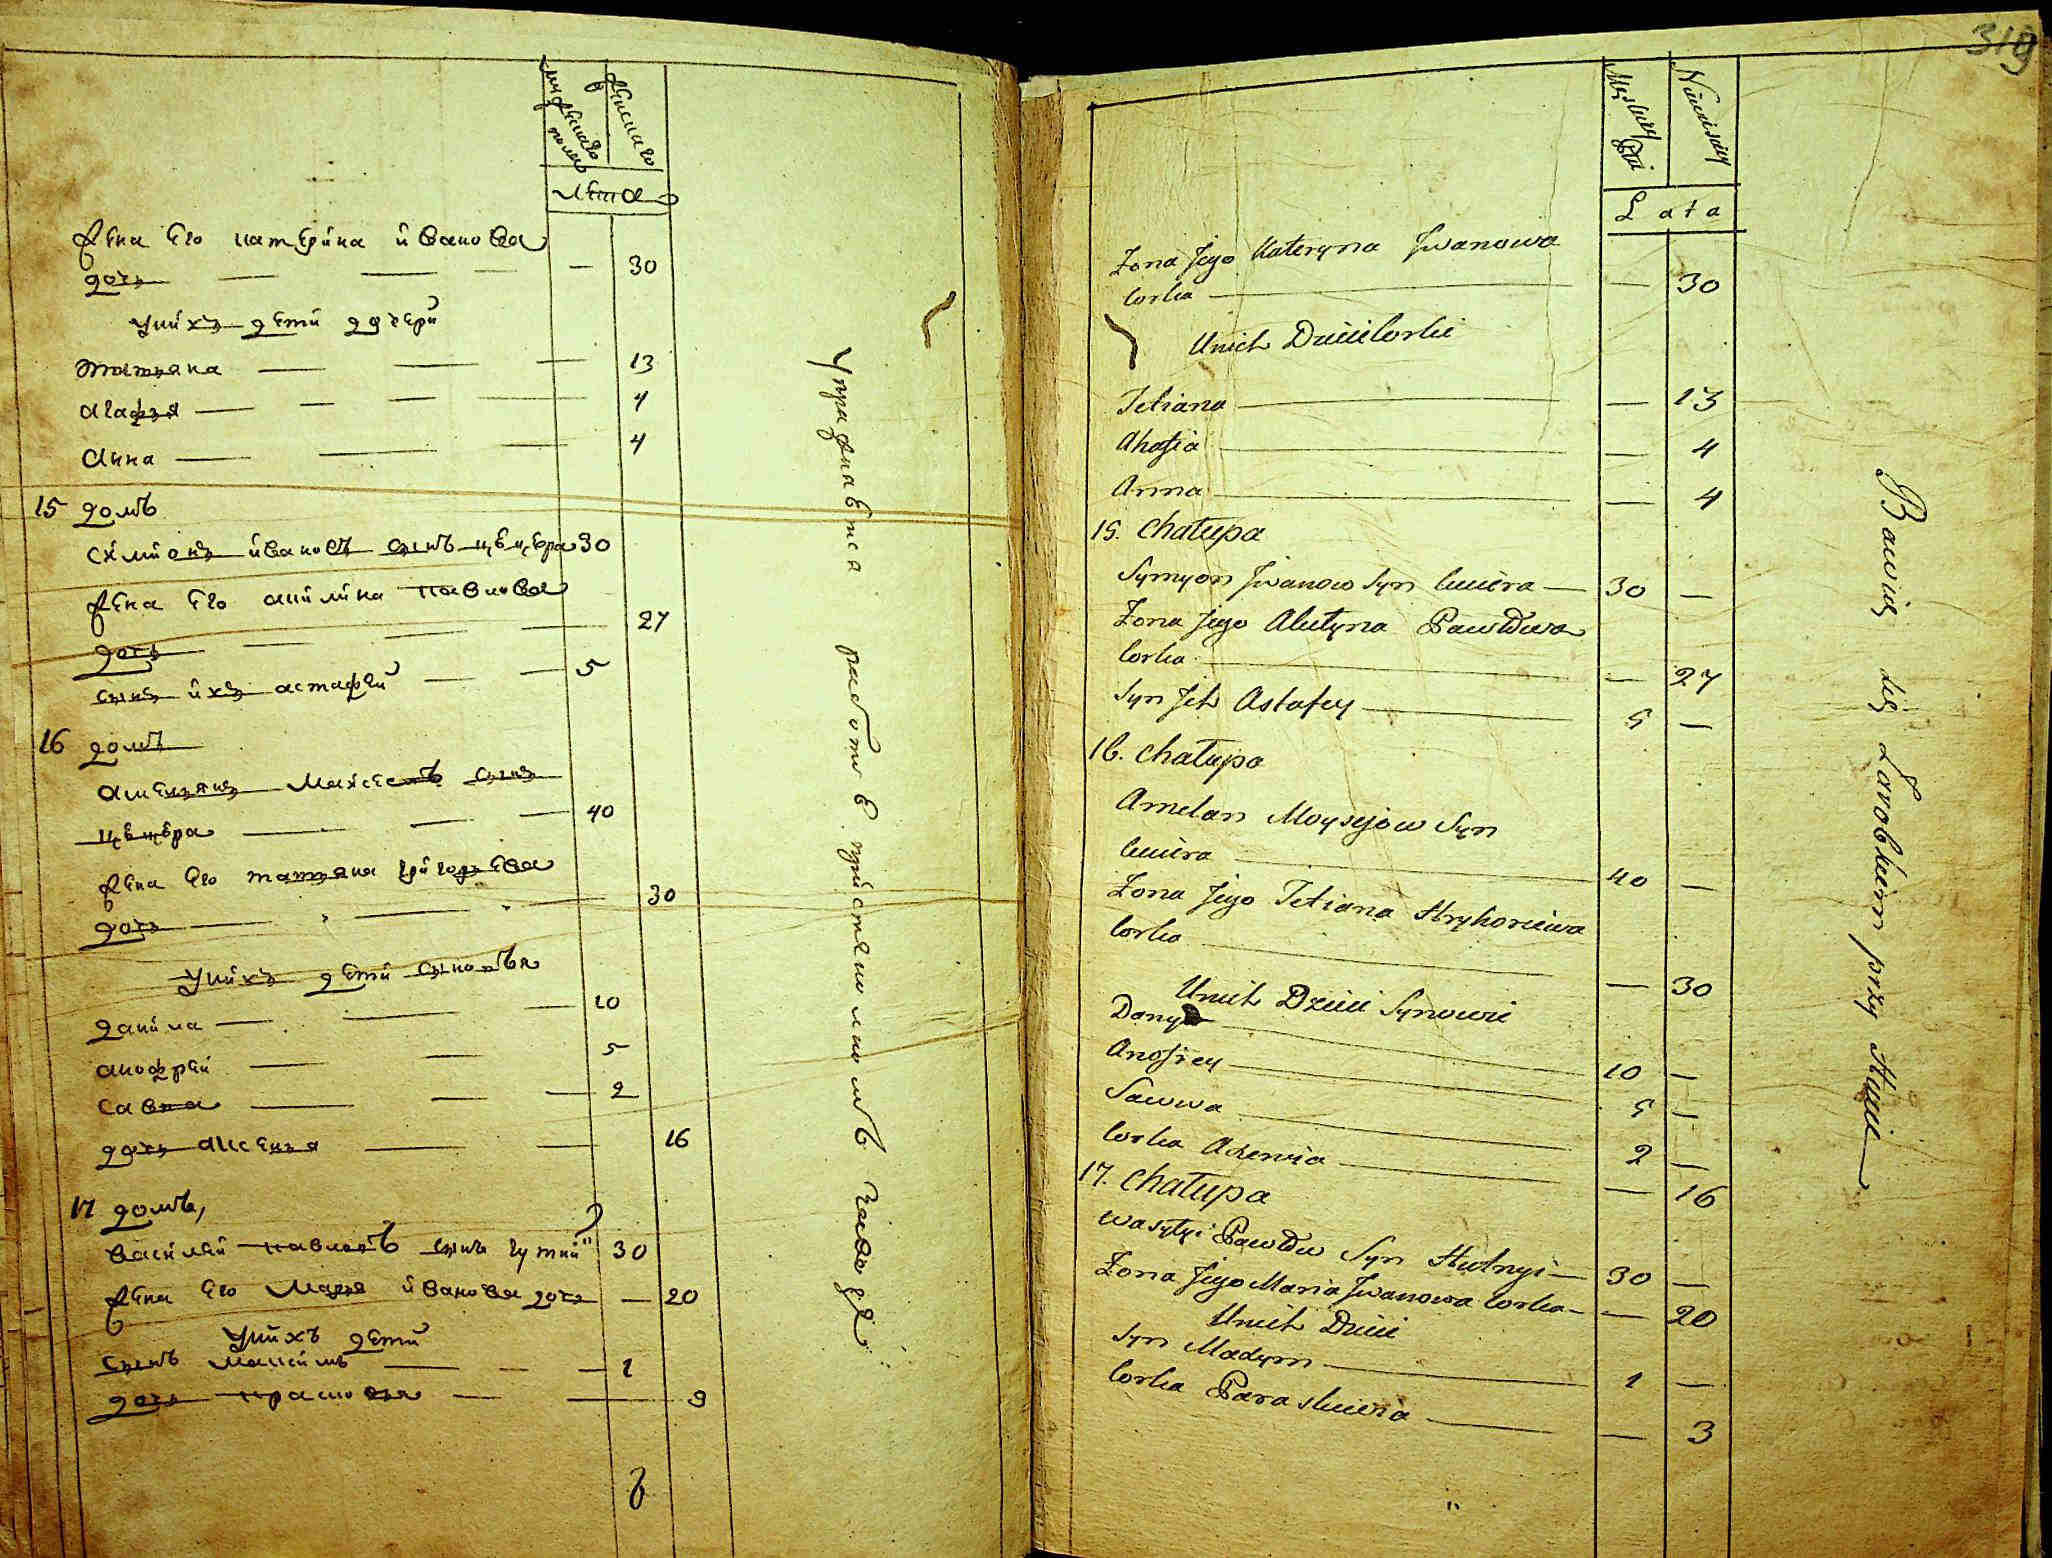 мужескаго полу
женскаго
лета
жена его катерина иванова
дочь 30
у них детй дочери
татьяна 13
агафья 4
анна 4
15 домъ
симионъ ивановъ сынъ цвицера 30
жена его акилина павлова
дочь 27
сынъ ихъ астафей 5
16 домъ
амельянъ маисеевъ сынъ
цвицера 40
жена его татьяна григорьева
дочь 30
у нихъ дети сыновья
данила 10
анофрей 5
савва 2
дочь аксенья 16
17 домъ,
василей павловъ сынъ гутний 30
жена его марья иванова дочь 20
у нихъ дети
сынъ максимъ 1
дочь прасковья 3
упражнявтся работав при стекляном заводе
319
Męskiey Płci
Niewieściey
Lata
Żona Jego Kateryna Jwanowa
Corka — 30
Unich Dzieci Corki
Tetiana — 13
Ahafia — 4
Anna — 4
15. Chałupa
Symyon Jwanow Syn Cwicera 30 —
Żona Jego Akułyna Pawłowa
Corka — 27
Syn Jch Astafey 5 —
16. Chałupa
Amelan Moysejow Syn
Cwicera 40 —
Żona Jego Tetiana Hryhoriewa
Corka — 30
Unich Dzieci Synowie
Danył 10 —
Anofrey 5 —
Sawwa 2 —
Corka Axenia — 16
17. Chałupa
Wasylyi Pawłow Syn Hutnyi 30 —
Żona Jego Maria Jwanowa Corka — 20
Unich Dzieci
Syn Maxym 1 —
Corka Paraskiewia — 3
Bawią się Zarobkiem przy Hucie